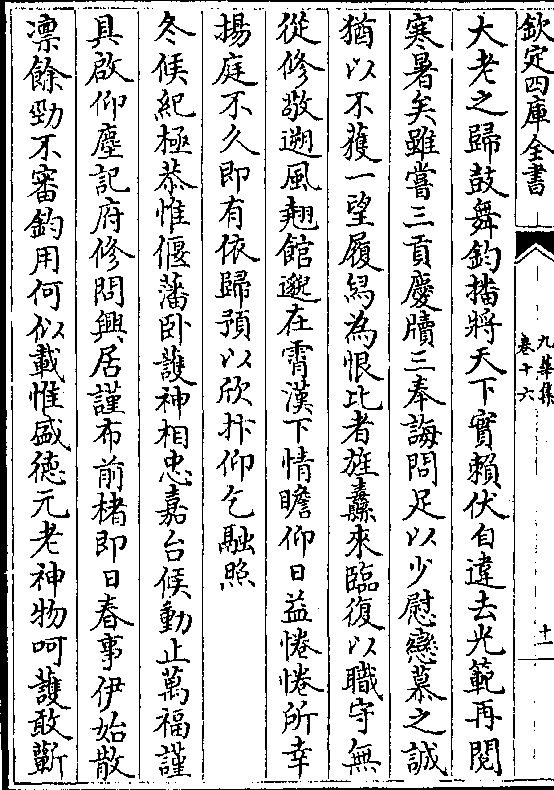 欽定四庫全書
九華集
卷十六
十一
大老之歸鼓舞鈞播將天下實賴伏自違去光範再閱
寒暑矣雖嘗三貢慶牘三奉誨問足以少慰戀慕之誠
猶以不獲一望履舄為恨比者旌纛來臨復以職守無
從修敬遡風翹館邈在霄漢下情瞻仰日益惓惓所幸
揚庭不久即有依歸預以欣抃仰乞融照
冬候紀極恭惟偃藩卧護神相忠嘉台候動止萬福謹
具啟仰塵記府修問興居謹布前楮即日春事伊始散
凛餘勁不審鈞用何似載惟盛徳元老神物呵護敢蘄